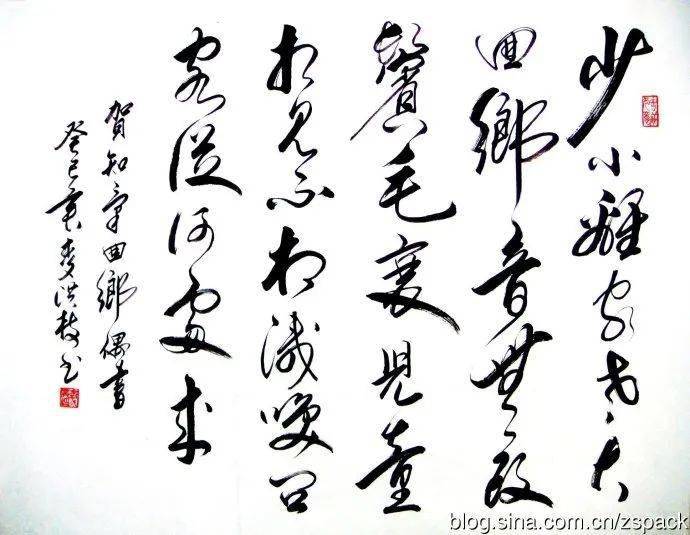 少小離家老大
回鄉音無改
鬢毛衰兒童
相見不相識咲問
客從何處來
賀知章回鄉偶書
癸巳
blog.sina.com.cn/zspack